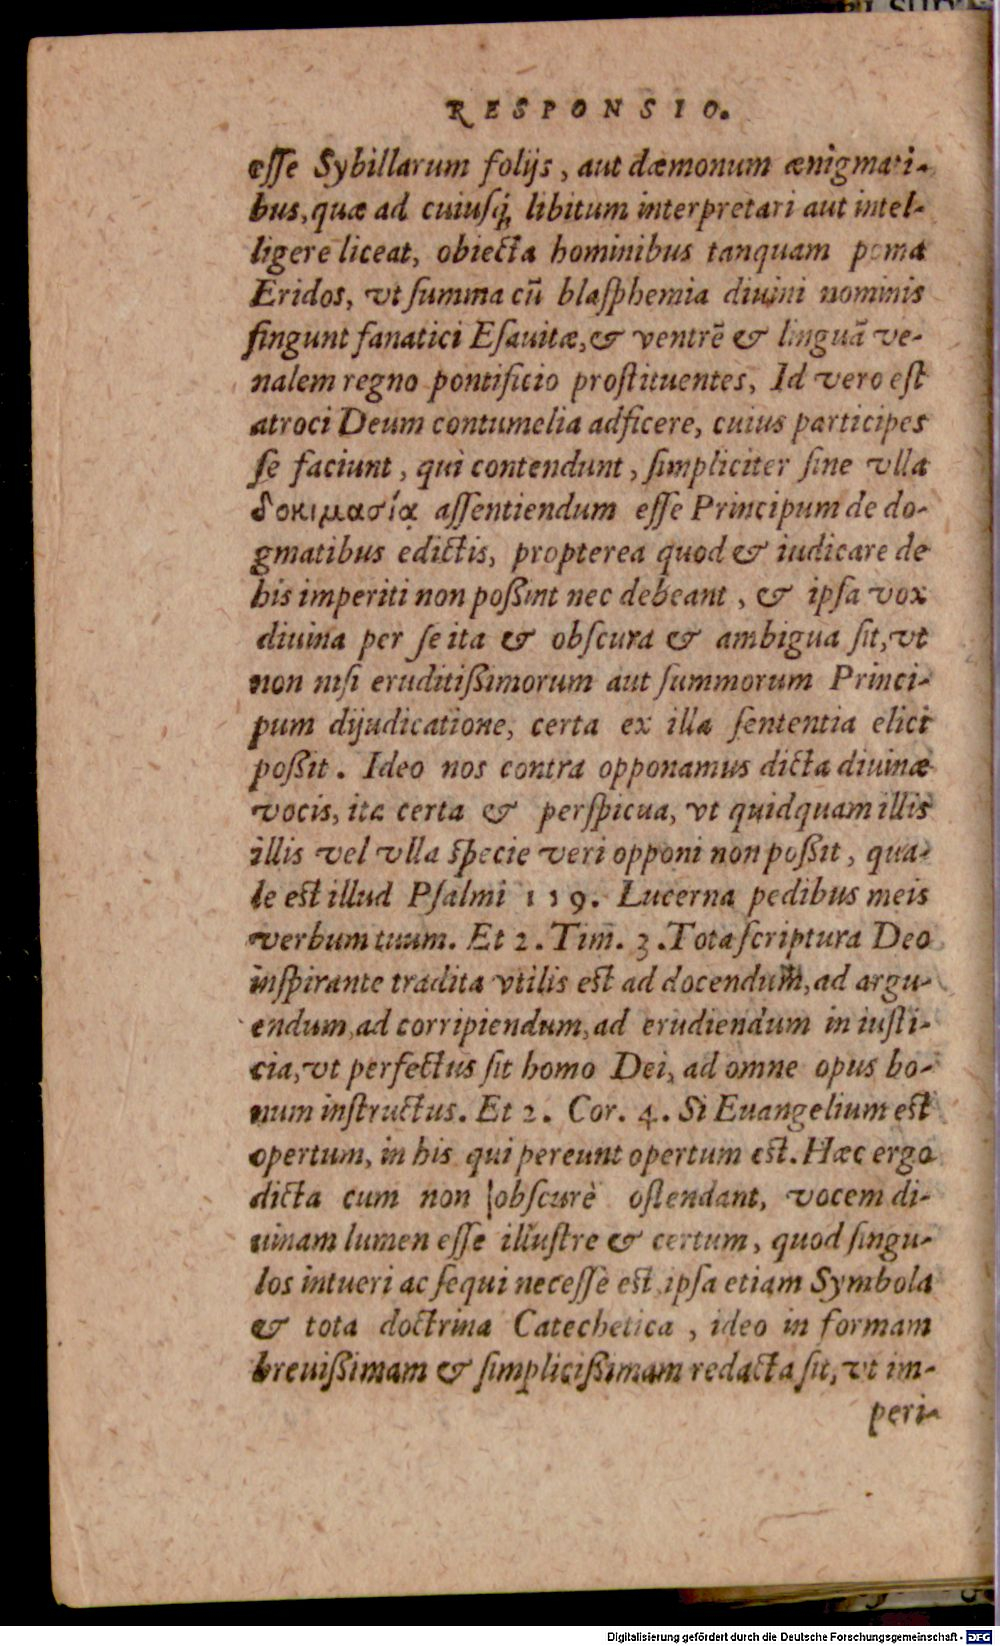 RESPONSIO.
eſſe Sybillarum folijs, aut dæmonum ænigmati-
bus, quæ ad cuiuſq́; libitum interpretari aut intel-
ligere liceat, obiecta hominibus tanquam poma
Eridos, vt ſumma cū blaſphemia diuini nominis
fingunt fanatici Eſauitæ, & ventrē & linguā ve-
nalem regno pontificio proſtituentes, Id vero eſt
atroci Deum contumelia adficere, cuius participes
ſe faciunt, qui contendunt, ſimpliciter ſine vlla
δοκιμασίᾳ aſſentiendum eſſe Principum de do-
gmatibus edictis, propterea quod & iudicare de
his imperiti non poßint nec debeant, & ipſa vox
diuina per ſe ita & obſcura & ambigua ſit, vt
non niſi eruditißimorum aut ſummorum Princi-
pum dijudicatione, certa ex illa ſententia elici
poßit. Ideo nos contra opponamus dicta diuinæ
vocis, ita certa & perſpicua, vt quidquam illis
illis vel vlla ſpecie veri opponi non poßit, qua-
le eſt illud Pſalmi 119. Lucerna pedibus meis
verbum tuum. Et 2. Tim. 3. Tota ſcriptura Deo
inſpirante tradita vtilis eſt ad docendum, ad argu-
endum, ad corripiendum, ad erudiendum in iuſti-
cia, vt perfectus ſit homo Dei, ad omne opus bo-
num inſtructus. Et 2. Cor. 4. Si Euangelium eſt
opertum, in his qui pereunt opertum eſt. Hæc ergo
dicta cum non obſcurè oſtendant, vocem di-
uinam lumen eſſe illuſtre & certum, quod ſingu-
los intueri ac ſequi neceſſe eſt, ipſa etiam Symbola
& tota doctrina Catechetica, ideo in formam
breuißimam & ſimplicißimam redacta ſit, vt im-
peri-
Digitalisierung gefördert durch die Deutsche Forschungsgemeinschaft - DFG